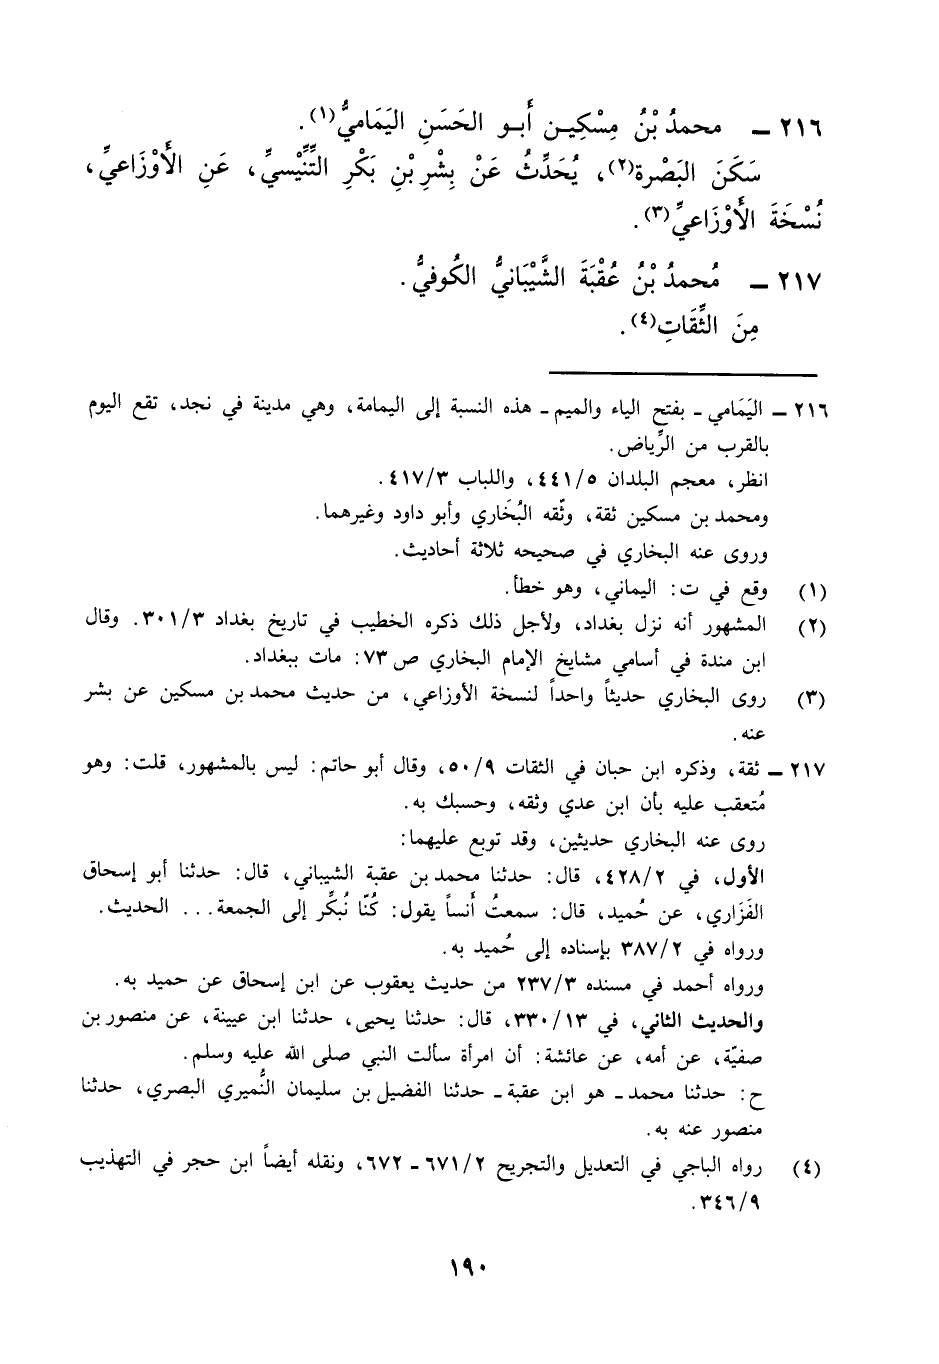 ٢١٦ ـ محمدُ بْنُ مِسْكِيـن أَبـو الحَسَنِ اليَمَاميُّ(١).
سَكَنَ البَصْرة(٢)، يُحَدِّثُ عَنْ بِشْرِ بْنِ بَكْرِ التِّنِّيْسيِّ، عَنِ الأَوْزَاعيِّ،
نُسْخَةَ الأَوْزَاعيِّ(٣).
٢١٧ ـ مُحمدُ بْنُ عُقْبَةَ الشَّيْبَانيُّ الكُوفيُّ.
مِنَ الثِّقَاتِ(٤).
٢١٦ ـ اليَمَامي ـ بفتح الياء والميم ـ هذه النسبة إلى اليمامة، وهي مدينة في نجد، تقع اليوم
بالقرب من الرِّياض.
انظر، معجم البلدان ٤٤١/٥، واللباب ٤١٧/٣.
ومحمد بن مسكين ثقة، وثّقه البُخَاري وأبو داود وغيرهما.
وروى عنه البخاري في صحيحه ثلاثة أحاديث.
(١) وقع في ت: اليماني، وهو خطأ.
(٢) المشهور أنه نزل بغداد، ولأجل ذلك ذكره الخطيب في تاريخ بغداد ٣٠١/٣. وقال
ابن مندة في أسامي مشايخ الإمام البخاري ص ٧٣: مات ببغداد.
(٣) روى البخاري حديثاً واحداً لنسخة الأوزاعي، من حديث محمد بن مسكين عن بشر
عنه.
٢١٧ ـ ثقة، وذكره ابن حبان في الثقات ٥٠/٩، وقال أبو حاتم: ليس بالمشهور، قلت: وهو
مُتعقب عليه بأن ابن عدي وثقه، وحسبك به.
روى عنه البخاري حديثين، وقد توبع عليهما:
الأول، في ٤٢٨/٢، قال: حدثنا محمد بن عقبة الشيباني، قال: حدثنا أبو إسحاق
الفَزَاري، عن حُميد، قال: سمعتُ أَنساً يقول: كُنّا نُبكِّر إلى الجمعة... الحديث.
ورواه في ٣٨٧/٢ بإسناده إلى حُميد به.
ورواه أحمد في مسنده ٢٣٧/٣ من حديث يعقوب عن ابن إسحاق عن حميد به.
والحديث الثاني، في ٣٣٠/١٣، قال: حدثنا يحيى، حدثنا ابن عيينة، عن منصور بن
صفيّة، عن أمه، عن عائشة: أن امرأة سألت النبي صلى الله عليه وسلم.
ح: حدثنا محمد ـ هو ابن عقبة ـ حدثنا الفضيل بن سليمان النُّميري البصري، حدثنا
منصور عنه به.
(٤) رواه الباجي في التعديل والتجريح ٦٧١/٢ ـ ٦٧٢، ونقله أيضاً ابن حجر في التهذيب
٣٤٦/٩.
١٩٠